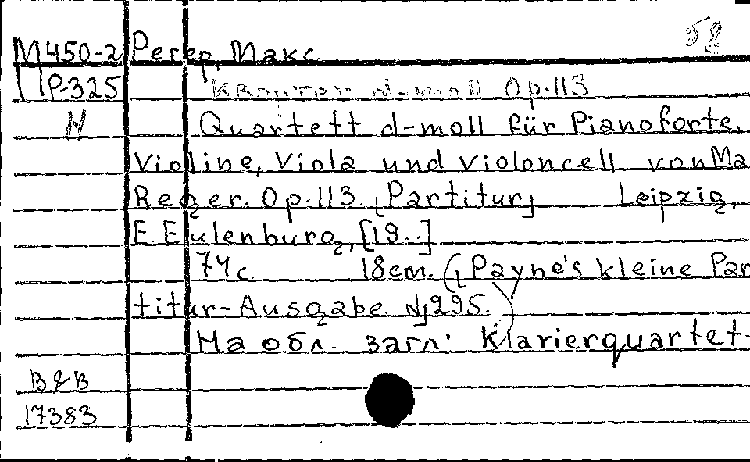 М450-2 Регер, Макс 52
Р-325 Квартет d-moll Op.113
Н Quartett d-moll für Pianoforte,
Violine, Viola und Violoncell von Ma
Reger. Op.113. [Partitur] Leipzig,
E Eulenburg, [19..]
74 c 18cm. ([Payne's kleine Par
titur-Ausgabe №295.)
На обл. загл: Klavierquartet
B&B
17383